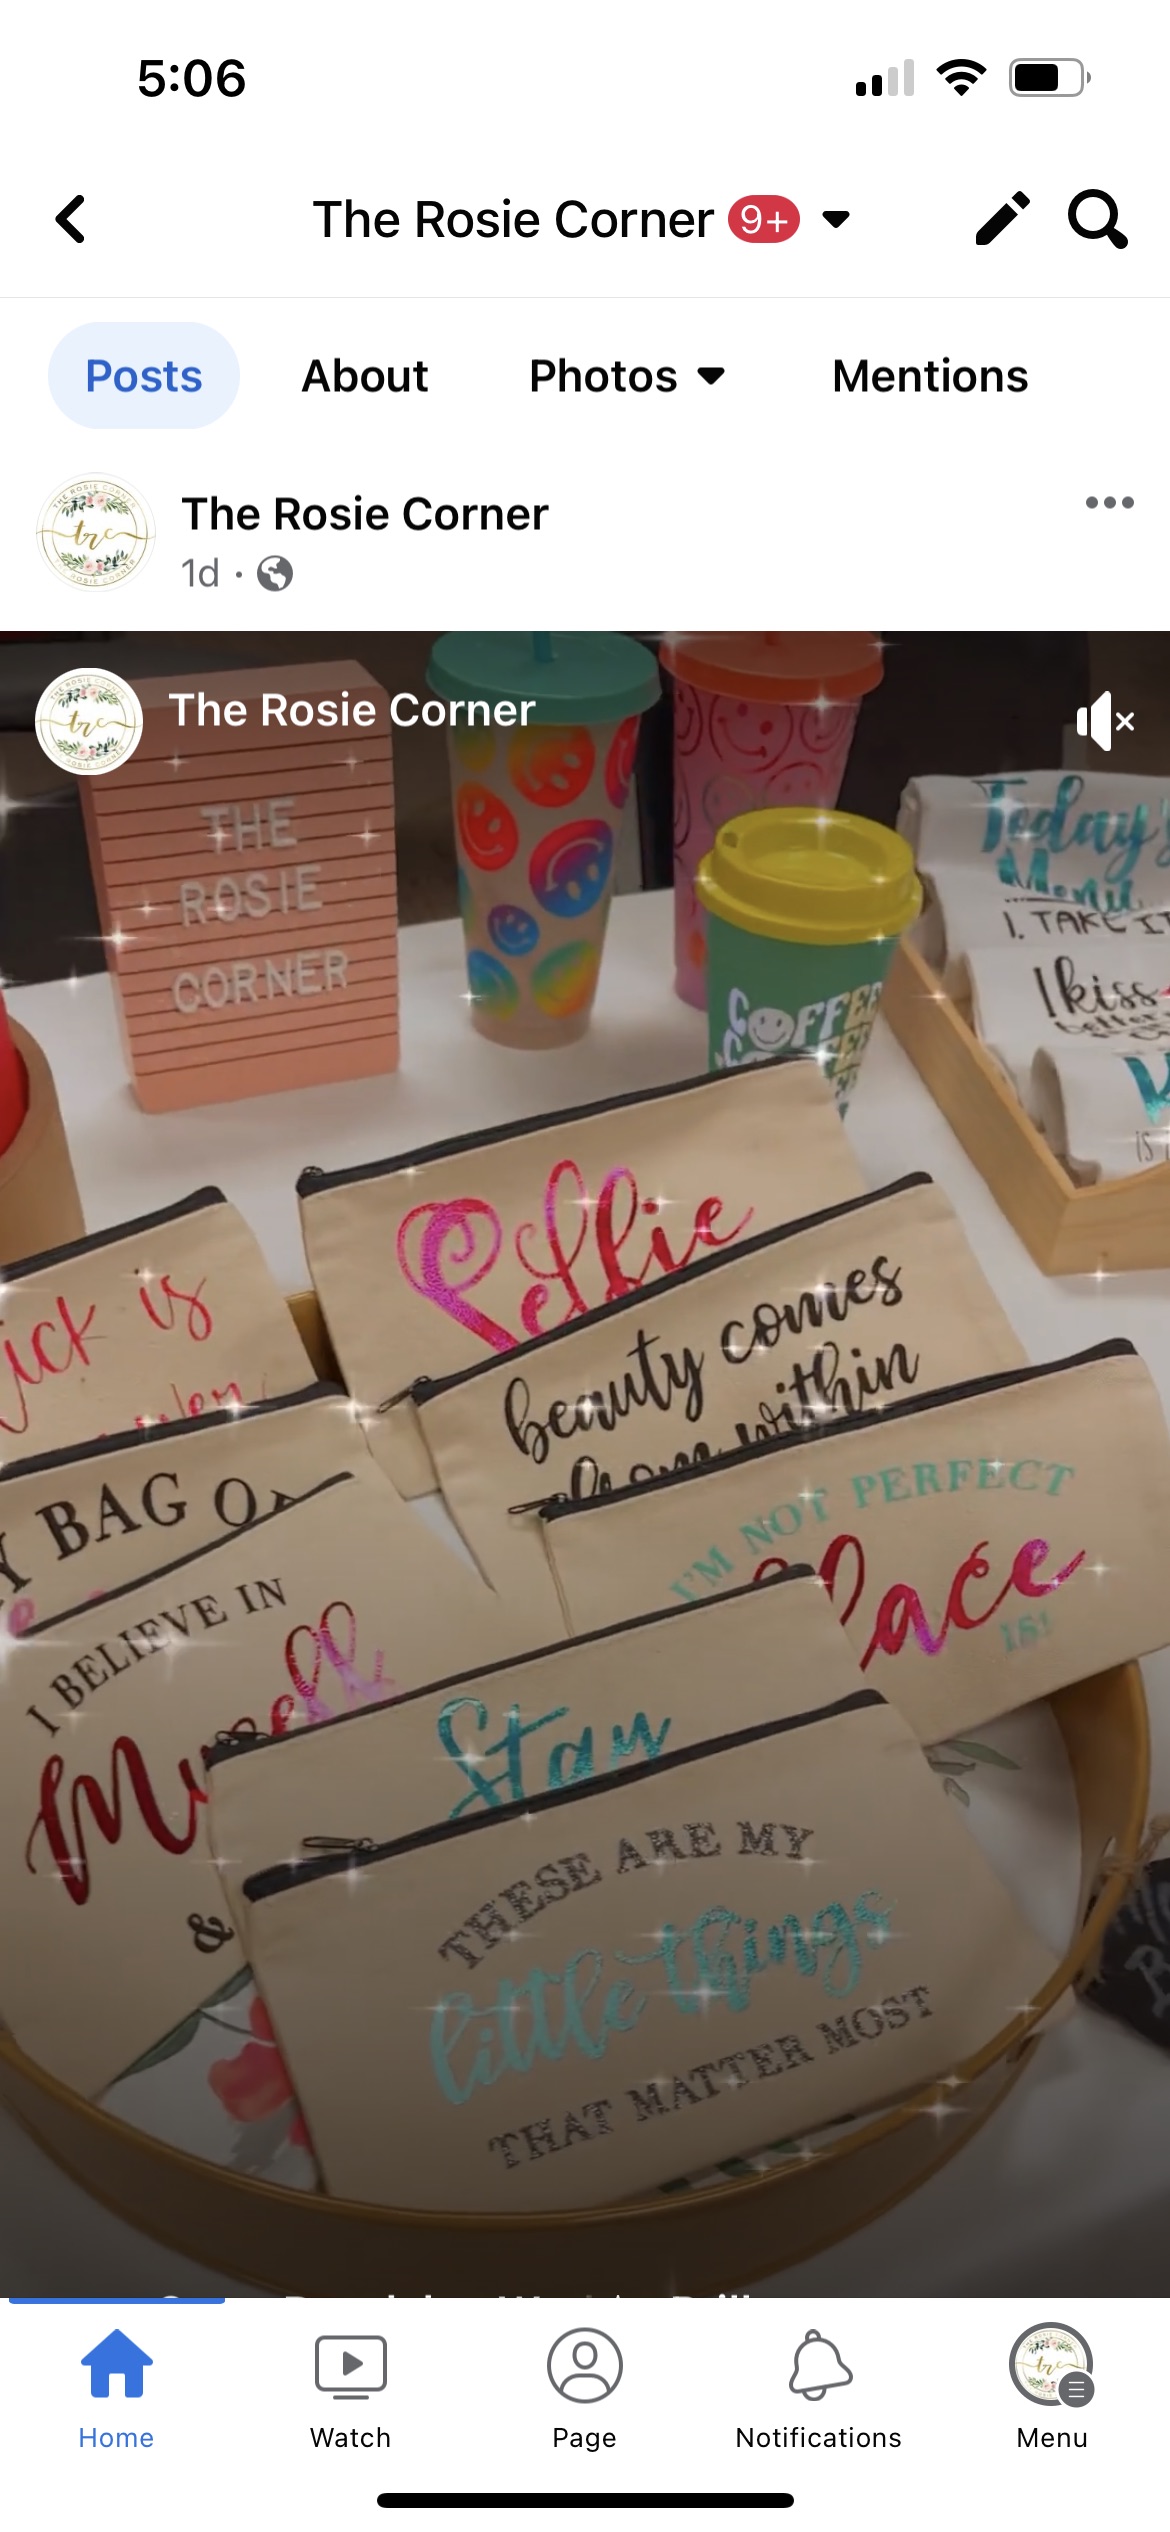 5:06
The Rosie Corner 9+
Posts About Photos Mentions
The Rosie Corner
1d ·
THE ROSIE CORNER
trc
THE ROSIE CORNER
The Rosie Corner
THE
ROSIE
CORNER
COFFEE
Today's
Menu
1. TAKE IT
I kiss
better
Ellie
ick is
beauty comes
from within
Y BAG O
I'M NOT PERFECT
IS!
I BELIEVE IN
&
Stay
THESE ARE MY
little things
THAT MATTER MOST
Home
Watch
Page
Notifications
Menu